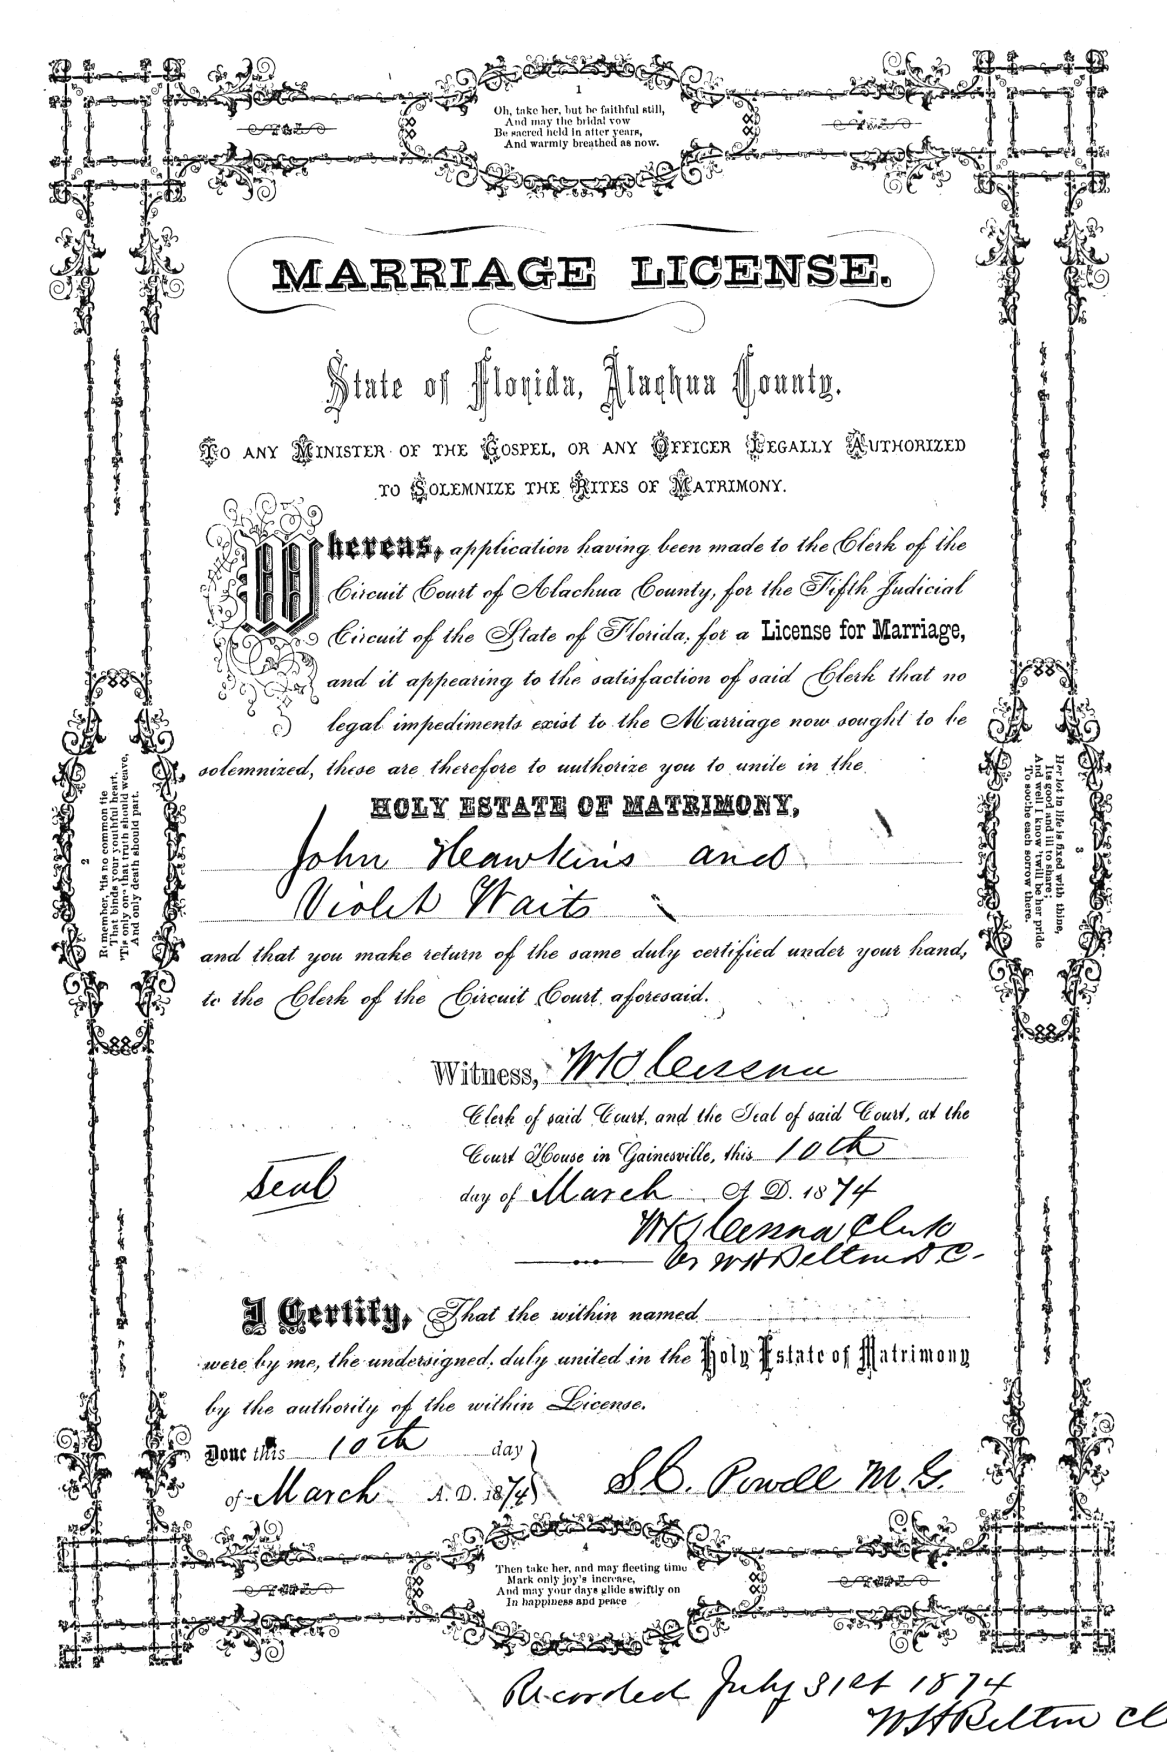 1
Oh, take her, but be faithful still,
And may the bridal vow
Be sacred held in after years,
And warmly breathed as now.
MARRIAGE LICENSE.
State of Florida, Alachua County.
TO ANY MINISTER OF THE GOSPEL, OR ANY OFFICER LEGALLY AUTHORIZED
TO SOLEMNIZE THE RITES OF MATRIMONY.
Whereas, application having been made to the Clerk of the
Circuit Court of Alachua County, for the Fifth Judicial
Circuit of the State of Florida, for a License for Marriage,
and it appearing to the satisfaction of said Clerk that no
legal impediments exist to the Marriage now sought to be
solemnized, these are therefore to authorize you to unite in the
HOLY ESTATE OF MATRIMONY,
John Hawkins and
Violet Waits
and that you make return of the same duly certified under your hand,
to the Clerk of the Circuit Court aforesaid.
Witness, WK Cessna
Clerk of said Court, and the Seal of said Court, at the
Court House in Gainesville, this 10th
Seal
day of March A. D. 1874
WK Cessna Clerk
W H Belton D. C.
I Certify, That the within named
were by me, the undersigned, duly united in the Holy Estate of Matrimony
by the authority of the within License.
Done this 10th day
of March A. D. 1874
S C. Powell M. G.
2
Remember, 'tis no common tie
That binds your youthful heart,
'Tis only one that truth should weave,
And only death should part.
3
Her lot in life is fixed with thine,
Its good and ill to share;
And well I know 'twill be her pride
To soothe each sorrow there.
4
Then take her, and may fleeting time
Mark only joy's increase,
And may your days glide swiftly on
In happiness and peace
Recorded July 31st 1874
W H Belton Cl